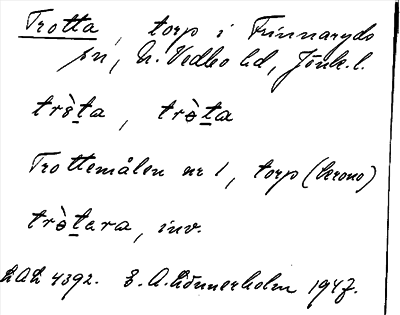 Trotta, torp i Finnaryds
sn, N. Vedbo hd, Jönk. l.
trò̀ta, tròta
Trottemålen nr 1, torp (krono)
tròtara, inv.
LAL 4392. E. A. Lönnerholm 1947.